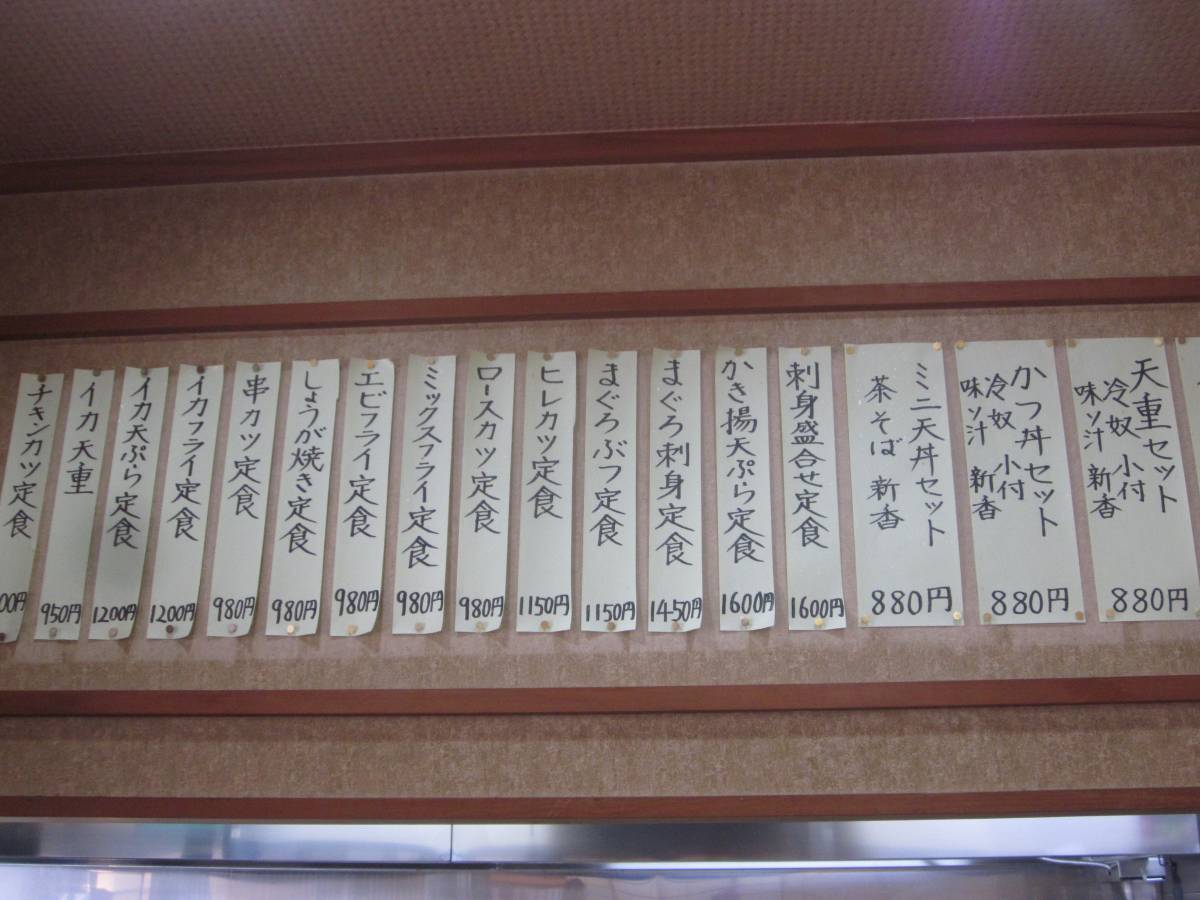 天重セット
冷奴 小付
味ソ汁 新香
880円
かつ丼セット
冷奴 小付
味ソ汁 新香
880円
ミニ天丼セット
茶そば 新香
880円
刺身盛合せ定食
1600円
かき揚天ぷら定食
1600円
まぐろ刺身定食
1450円
まぐろぶつ定食
1150円
ヒレカツ定食
1150円
ロースカツ定食
980円
ミックスフライ定食
980円
エビフライ定食
980円
しょうが焼き定食
980円
串カツ定食
980円
イカフライ定食
1200円
イカ天ぷら定食
1200円
イカ天重
950円
チキンカツ定食
00円